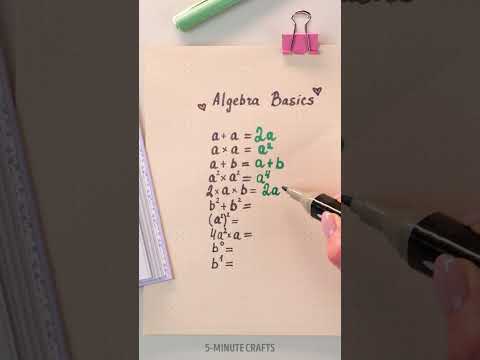 Algebra Basics
a + a = 2a
a × a = a²
a + b = a + b
a² × a² = a⁴
2 × a × b = 2a
b² + b² =
(a²)² =
4a² × a =
b⁰ =
b¹ =
5-MINUTE CRAFTS